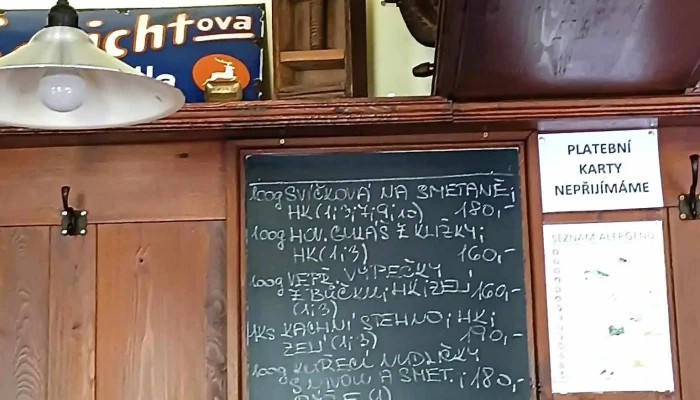 ichtova
100g SVÍČKOVÁ NA SMETANĚ;
HK (1;3;7;9;10) 180,-
100g HOV. GULÁŠ Z KLIŽKY;
HK (1;3) 160,-
100g VEPŘ. VÝPEČKY
Z BŮČKU; HK; ZELÍ 160,-
(1;3)
1KS KACHNÍ STEHNO; HK;
ZELÍ (1;3) 190,-
100g KUŘECÍ NUDLIČKY
S NIVOU A SMET.; 180,-
PLATEBNÍ
KARTY
NEPŘIJÍMÁME
SEZNAM ALERGENŮ